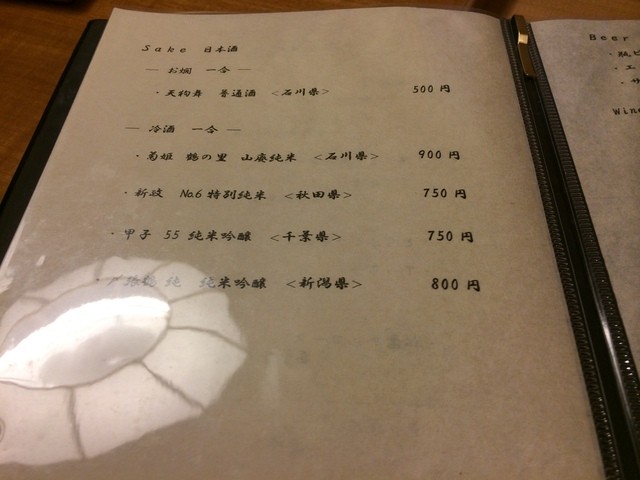 Sake 日本酒
― お燗 一合 ―
・天狗舞 普通酒 <石川県> 500円
― 冷酒 一合 ―
・菊姫 鶴の里 山廃純米 <石川県> 900円
・新政 No.6 特別純米 <秋田県> 750円
・甲子 55 純米吟醸 <千葉県> 750円
・ 鶴 純 純米吟醸 <新潟県> 800円
Beer
・瓶ビ
・エ
・サ
Wine